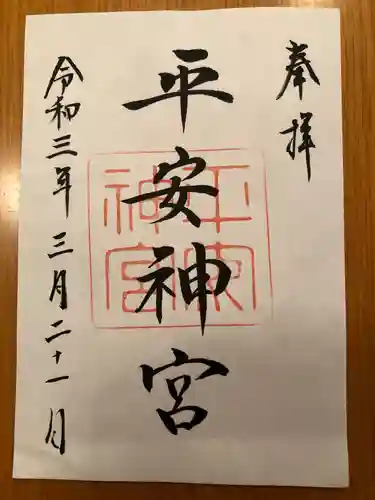 奉拝
平安神宮
平安神宮
令和三年三月二十一月